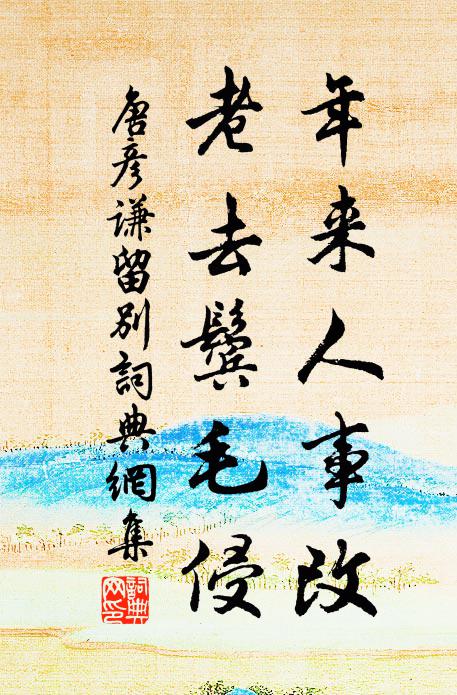 年来人事改
老去鬓毛侵
唐彦谦留别詞典網集
詞典網印